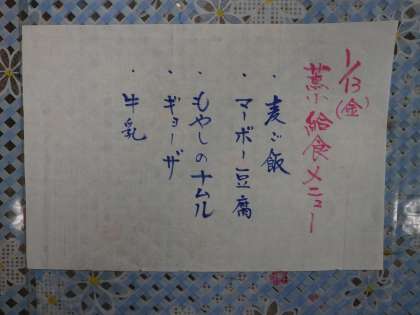 1/13(金)
給食メニュー
・麦ご飯
・マーボー豆腐
・もやしのナムル
・ギョーザ
・牛乳